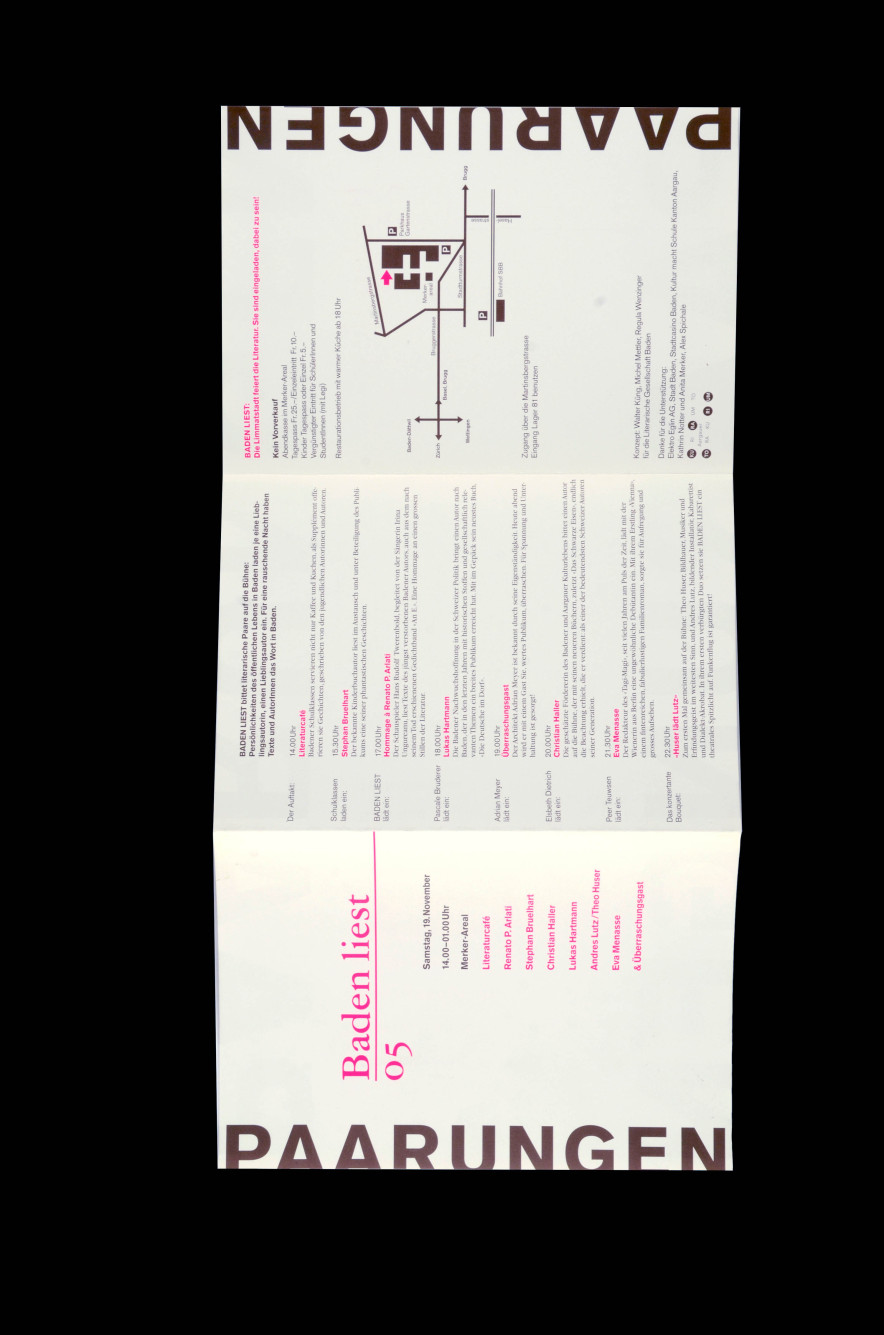 PAARUNGEN
Baden liest
05
Samstag, 19. November
14.00–01.00 Uhr
Merker-Areal
Literaturcafé
Renato P. Arlati
Stephan Bruelhart
Christian Haller
Lukas Hartmann
Andres Lutz / Theo Huser
Eva Menasse
& Überraschungsgast
BADEN LIEST bittet literarische Paare auf die Bühne:
Persönlichkeiten des öffentlichen Lebens in Baden laden je eine Lieb-
lingsautorin, einen Lieblingsautor ein. Für eine rauschende Nacht haben
Texte und AutorInnen das Wort in Baden.
Der Auftakt:
14.00 Uhr
Literaturcafé
Badener Schulklassen servieren nicht nur Kaffee und Kuchen, als Supplement offe-
rieren sie Geschichten, geschrieben von den jugendlichen Autorinnen und Autoren.
Schulklassen
laden ein:
15.30 Uhr
Stephan Bruelhart
Der bekannte Kinderbuchautor liest im Austausch und unter Beteiligung des Publi-
kums eine seiner phantastischen Geschichten.
BADEN LIEST
lädt ein:
17.00 Uhr
Hommage à Renato P. Arlati
Der Schauspieler Hans Rudolf Twerenbold, begleitet von der Sängerin Irina
Ungureanu, liest Texte des jüngst verstorbenen Badener Autors, auch aus dem nach
seinem Tod erschienenen Gedichtband «An E.». Eine Hommage an einen grossen
Stillen der Literatur.
Pascale Bruderer
lädt ein:
18.00 Uhr
Lukas Hartmann
Die Badener Nachwuchshoffnung in der Schweizer Politik bringt einen Autor nach
Baden, der in den letzten Jahren mit historischen Stoffen und gesellschaftlich rele-
vanten Themen ein breites Publikum erreicht hat. Mit im Gepäck sein neustes Buch,
«Die Deutsche im Dorf».
Adrian Meyer
lädt ein:
19.00 Uhr
Überraschungsgast
Der Architekt Adrian Meyer ist bekannt durch seine Eigenständigkeit. Heute abend
wird er mit einem Gast Sie, wertes Publikum, überraschen. Für Spannung und Unter-
haltung ist gesorgt!
Elsbeth Dietrich
lädt ein:
20.00 Uhr
Christian Haller
Die geschätzte Förderin des Badener und Aargauer Kulturlebens bittet einen Autor
auf die Bühne, der mit seinen neueren Büchern, zuletzt «Das Schwarze Eisen», endlich
die Beachtung erhielt, die er verdient: als einer der bedeutendsten Schweizer Autoren
seiner Generation.
Peer Teuwsen
lädt ein:
21.30 Uhr
Eva Menasse
Der Redakteur des «Tagi-Magi», seit vielen Jahren am Puls der Zeit, lädt mit der
Wienerin aus Berlin eine ungewöhnliche Debütantin ein. Mit ihrem Erstling «Vienna»,
einem furiosen, fabulierlustigen Familienroman, sorgte sie für Aufregung und
grosses Aufsehen.
Das konzertante
Bouquet:
22.30 Uhr
«Huser lädt Lutz»
Zum ersten Mal gemeinsam auf der Bühne: Theo Huser, Bildhauer, Musiker und
Erfindungsgeist im weitesten Sinn, und Andres Lutz, bildender Installatör, Kabarettist
und Dialekt-Akrobat. In ihrem ersten verbürgten Duo setzen sie BADEN LIEST ein
theatrales Spitzlicht auf. Funkenflug ist garantiert!
BADEN LIEST:
Die Limmatstadt feiert die Literatur. Sie sind eingeladen, dabei zu sein!
Kein Vorverkauf
Abendkasse im Merker-Areal
Tagespass Fr. 25.– /Einzeleintritt Fr. 10.–
Kinder Tagespass oder Einzel Fr. 5.–
Vergünstigter Eintritt für SchülerInnen und
StudentInnen (mit Legi)
Restaurationsbetrieb mit warmer Küche ab 18 Uhr
Baden-Dättwil
Zürich
Basel, Brugg
Wettingen
Bruggerstrasse
Martinsbergstrasse
Merker-
areal
Stadtturmstrasse
P
Parkhaus
Gartenstrasse
P
P
Bahnhof SBB
Brugg
Zugang über die Martinsbergstrasse
Eingang Lager 81 benutzen
Konzept: Walter Küng, Michel Mettler, Regula Wenzinger
für die Literarische Gesellschaft Baden
Danke für die Unterstützung:
Elektro Eglin AG, Stadt Baden, Stadtcasino Baden, Kultur macht Schule Kanton Aargau,
Kathrin Notter und Anita Merker, Alex Spichale
PAARUNGEN